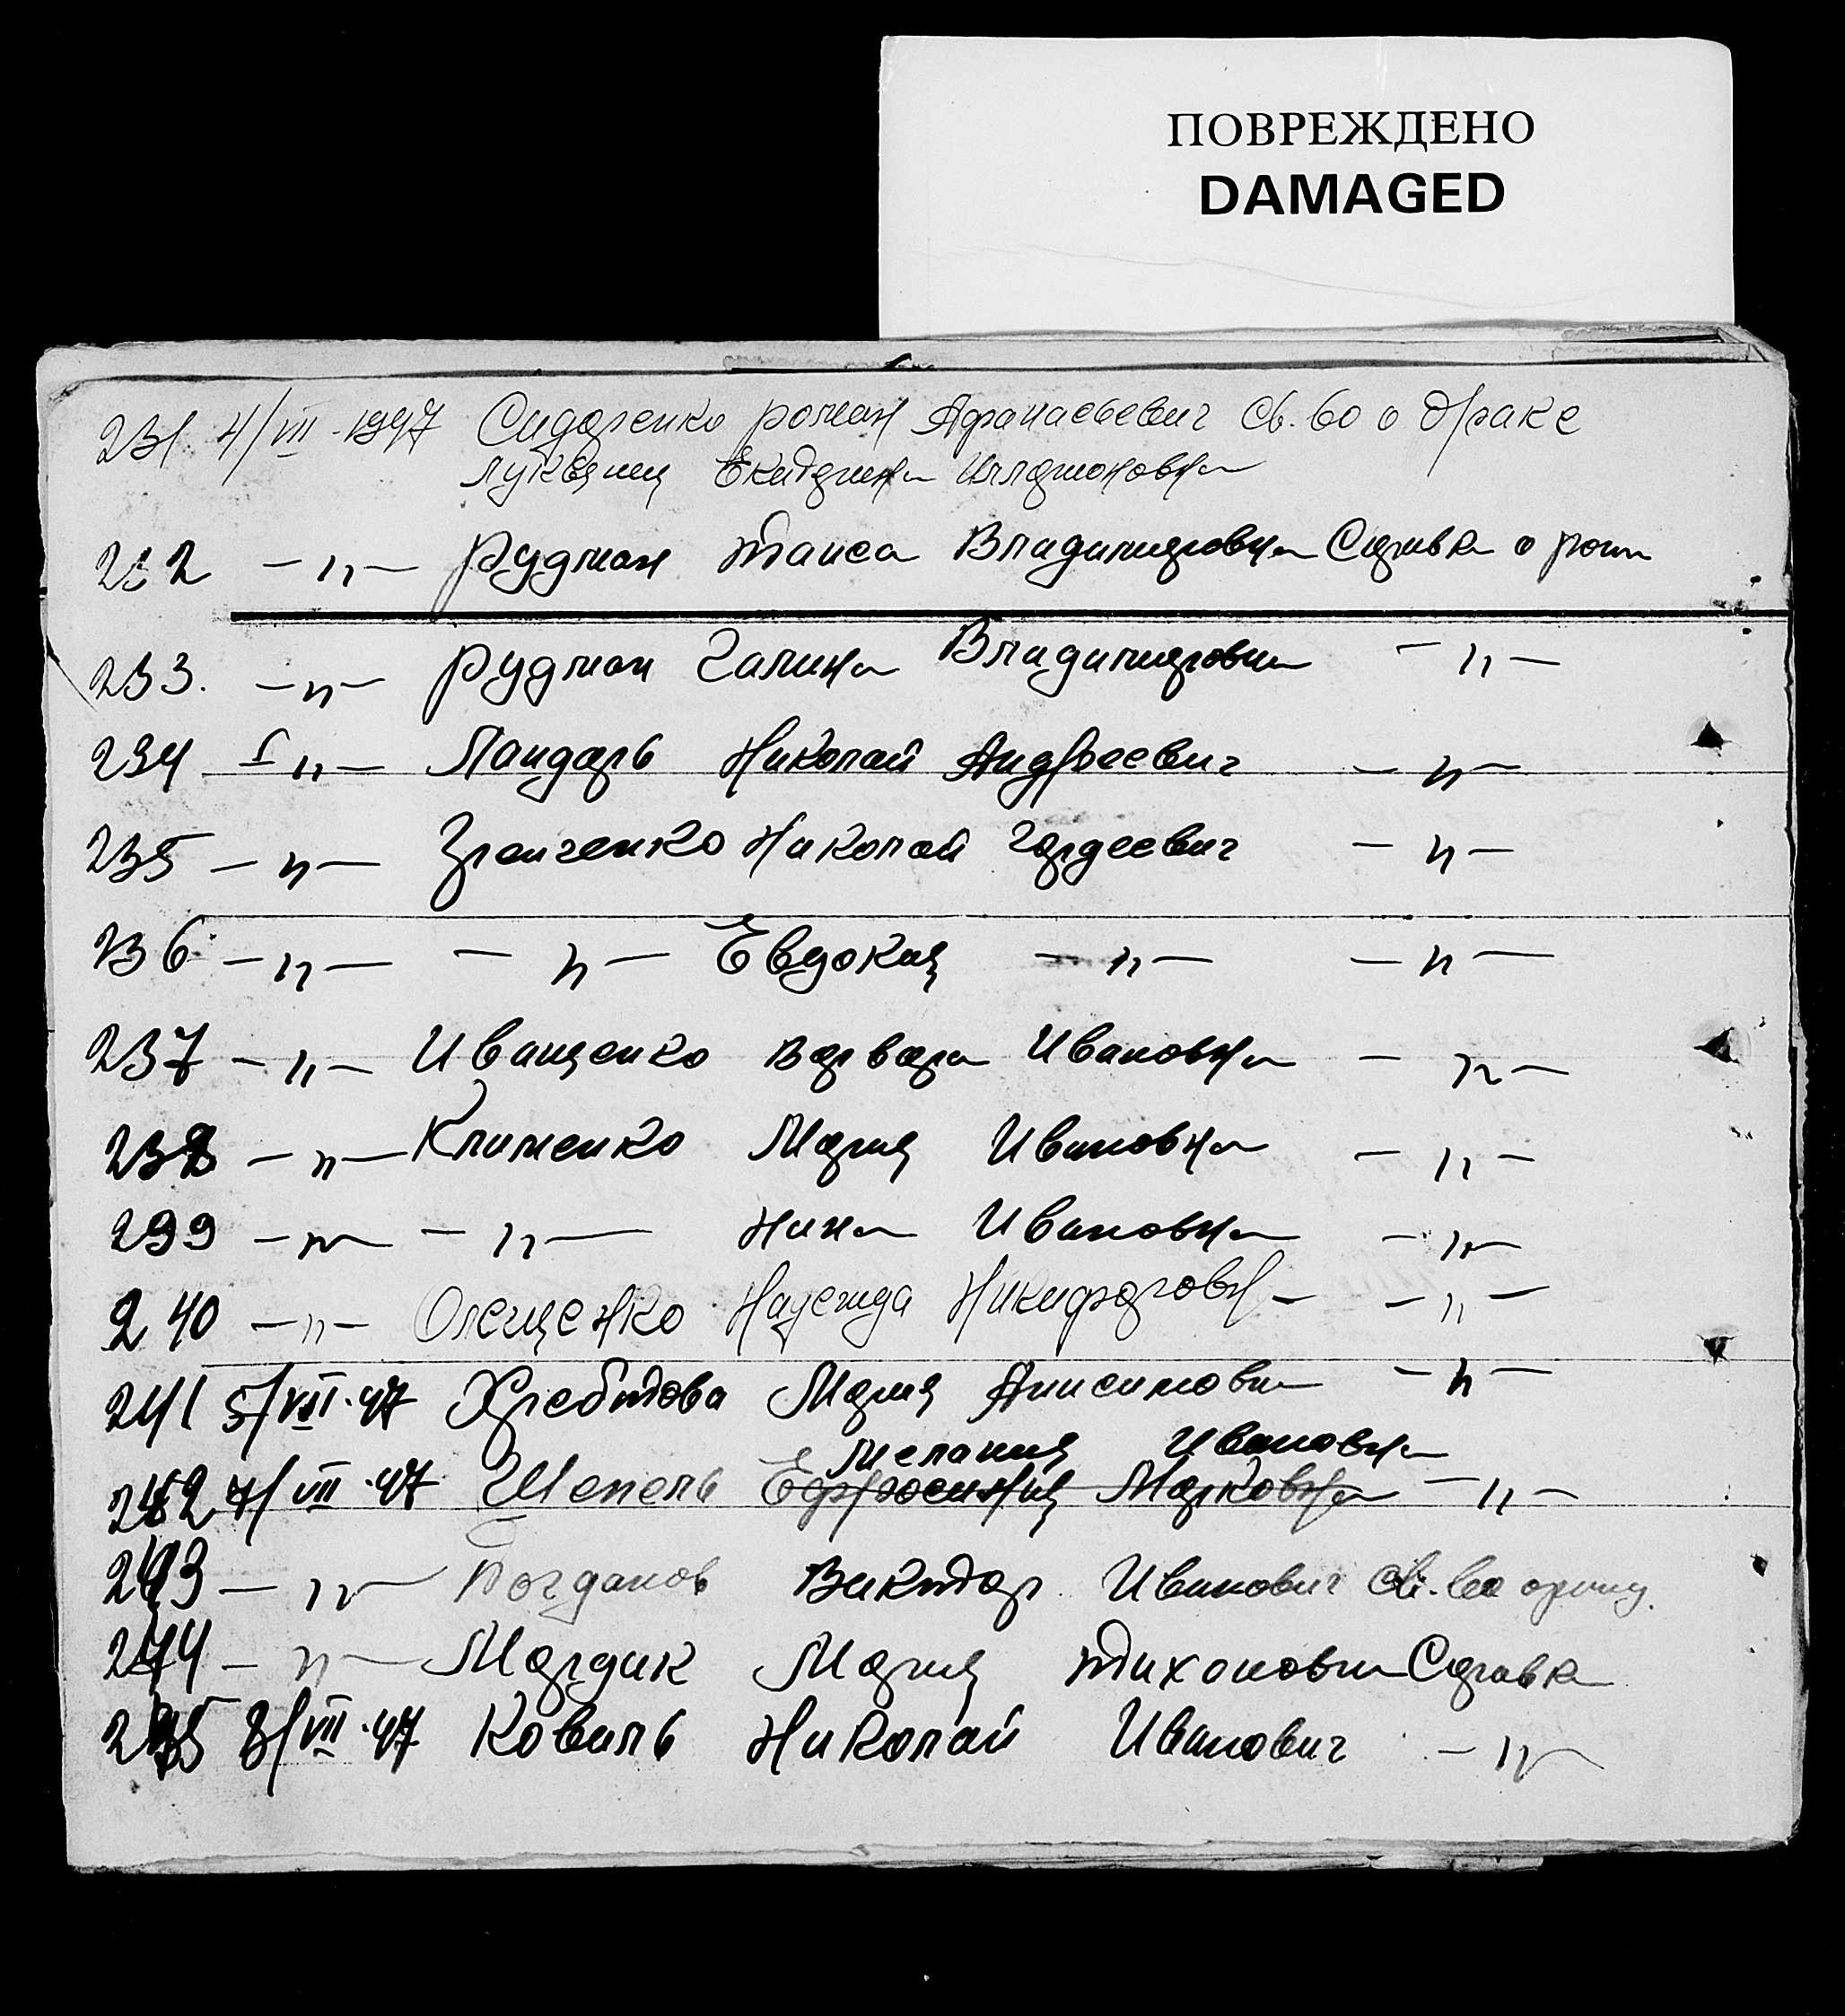 ПОВРЕЖДЕНО
DAMAGED
231 4/VIII-1947 Сидоренко роман Афанасьевич Св. во о браке
Екатерина
232 -"- Рудман таиса Владимировна Справка о
233. -"- Рудман Галина Владимировна -"-
234 -"- Пандарь Николай Андреевич -"-
235 -"- Николай Гордеевич -"-
236 -"- -"- Евдокия -"- -"-
237 -"- Иващенко Варвара Ивановна -"-
238 -"- Клименко Мария Ивановна -"-
239 -"- -"- Нина Ивановна -"-
240 -"- Олещенко Надежда Никифоровн- -"-
241 5/VIII-47 Хребтова Мария Анисимовн -"-
Мелания Ивановна
242 7/VIII-47 Шепель Ефросиния Марковна -"-
243 -"- Богданов Виктор Иванович Св. во
244 -"- Мардик Мария тихоновн Справка
245 8/VIII-47 Коваль Николай Иванович -"-